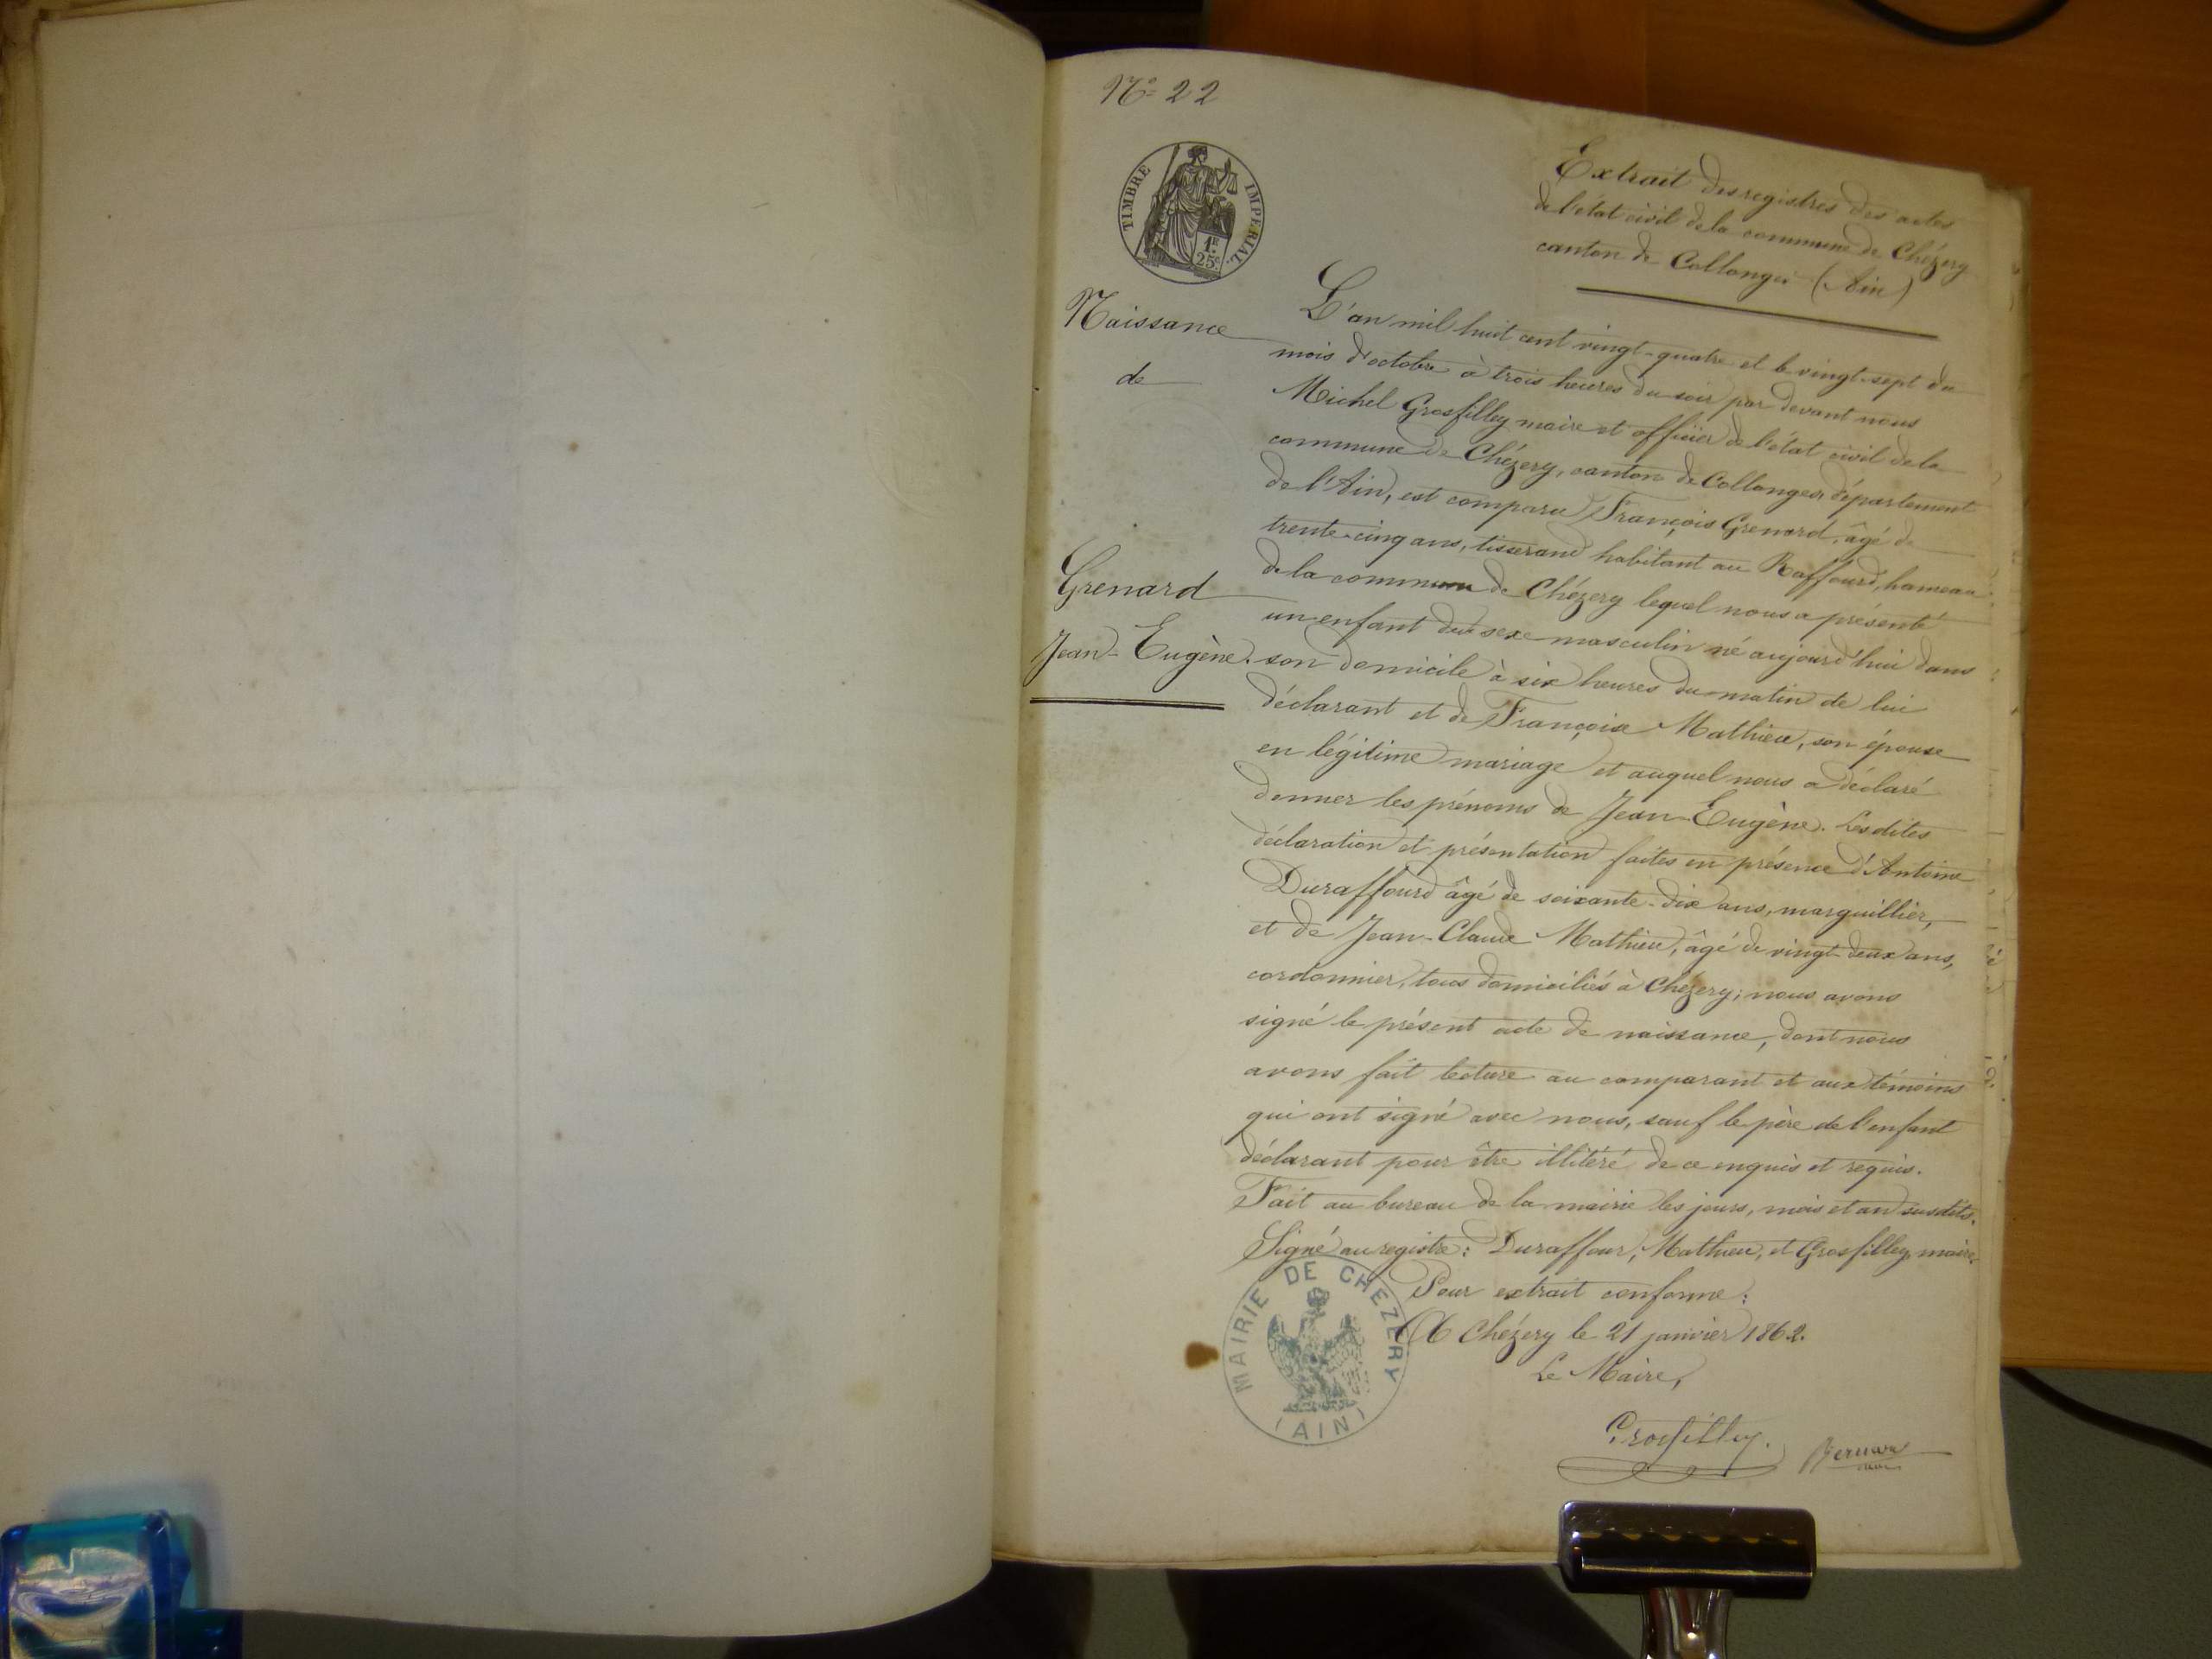 N° 22
TIMBRE IMPERIAL.
1F.
25c.
Extrait des registres des actes
de l'état civil de la commune de Chézery
canton de Collonges (Ain)
Naissance
de
Grenard
Jean-Eugène.
L'an mil huit cent vingt-quatre et le vingt-sept du
mois d'octobre à trois heures du soir par devant nous
Michel Grosfilley maire et officier de l'état civil de la
commune de Chézery, canton de Collonges, département
de l'Ain, est comparu François Grenard, âgé de
trente-cinq ans, tisserand habitant au Raffourd, hameau
de la commune de Chézery lequel nous a présenté
un enfant du sexe masculin né aujourd'hui dans
son domicile à six heures du matin de lui
déclarant et de Françoise Mathieu, son épouse
en légitime mariage et auquel nous a déclaré
donner les prénoms de Jean-Eugène. Lesdites
déclaration et présentation faites en présence d'Antoine
Duraffourd âgé de soixante-dix ans, marguillier,
et de Jean-Claude Mathieu, âgé de vingt-deux ans,
cordonnier, tous domiciliés à Chézery; nous avons
signé le présent acte de naissance, dont nous
avons fait lecture au comparant et aux témoins
qui ont signé avec nous, sauf le père de l'enfant
déclarant pour être illitéré de ce enquis et requis.
Fait au bureau de la mairie les jours, mois et an susdits.
Signé au registre: Duraffour, Mathieu, et Grosfilley, maire.
Pour extrait conforme:
A Chézery le 21 janvier 1862.
Le Maire,
MAIRIE DE CHEZERY
(AIN)
Grosfilley.